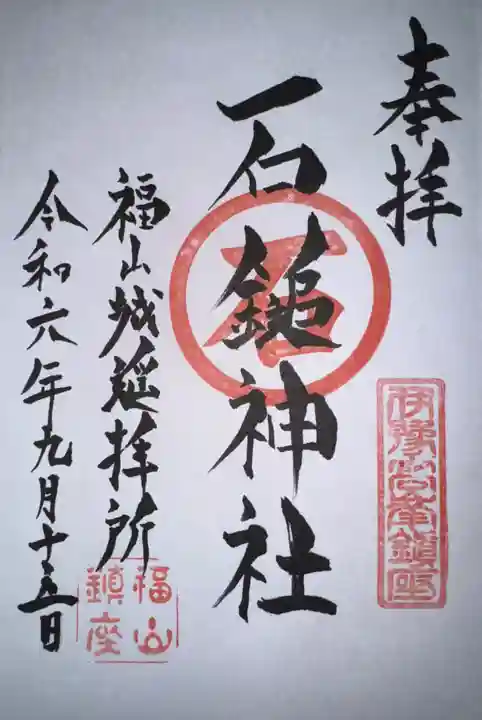 奉拝
石
石鎚神社
福山城遥拝所
福山
鎮座
令和六年九月十五日